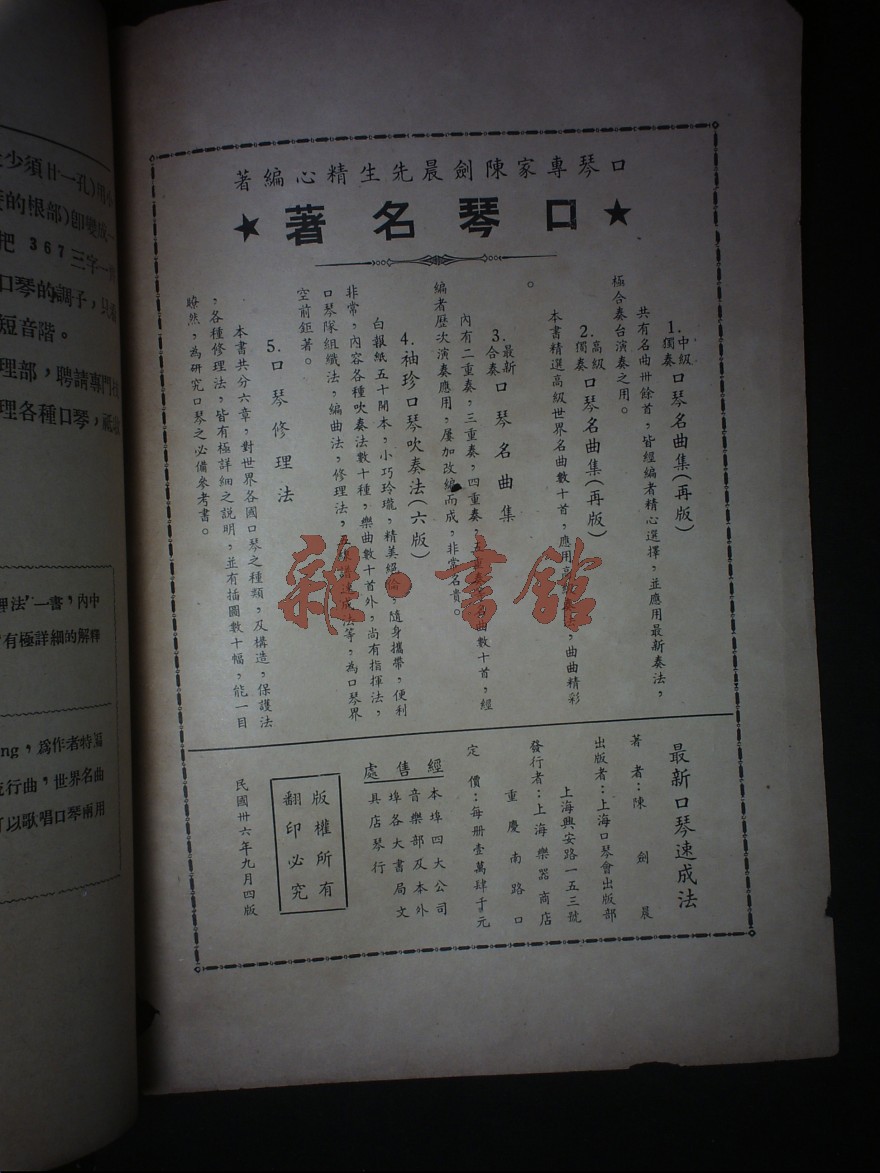 口琴專家陳劍晨先生精心編著
★口琴名著★
1. 中級獨奏 口琴名曲集(再版)
共有名曲卅餘首,皆經編者精心選擇,並應用最新奏法,
極合奏台演奏之用。
2. 高級獨奏 口琴名曲集(再版)
本書精選高級世界名曲數十首,應用高級奏法,曲曲精彩
。
3. 最新合奏 口琴名曲集
內有二重奏,三重奏,四重奏,五重奏等名曲數十首,經
編者歷次演奏應用,屢加改編而成,非常名貴。
4. 袖珍口琴吹奏法(六版)
白報紙五十開本,小巧玲瓏,精美絕倫,隨身攜帶,便利
非常,內容各種吹奏法數十種,樂曲數十首外,尚有指揮法,
口琴隊組織法,編曲法,修理法,五線譜速成法等,為口琴界
空前鉅著。
5. 口琴修理法
本書共分六章,對世界各國口琴之種類,及構造,保護法
,各種修理法,皆有極詳細之說明,並有插圖數十幅,能一目
瞭然,為研究口琴之必備參考書。
最新口琴速成法
著者:陳劍晨
出版者:上海口琴會出版部
上海興安路一五三號
發行者:上海樂器商店
重慶南路口
定價:每冊壹萬肆千元
經售處
本埠四大公司
音樂部及本外
埠各大書局文
具店琴行
版權所有
翻印必究
民國卅六年九月四版
雜·書館
少須廿一孔)用
的根部)卽變成一
把 367三字一
口琴的調子,只
短音階。
理部,聘請專門
理各種口琴,
理法"一書,內中
有極詳細的解釋
ng,為作者特
流行曲,世界名曲
可以歌唱口琴兩用